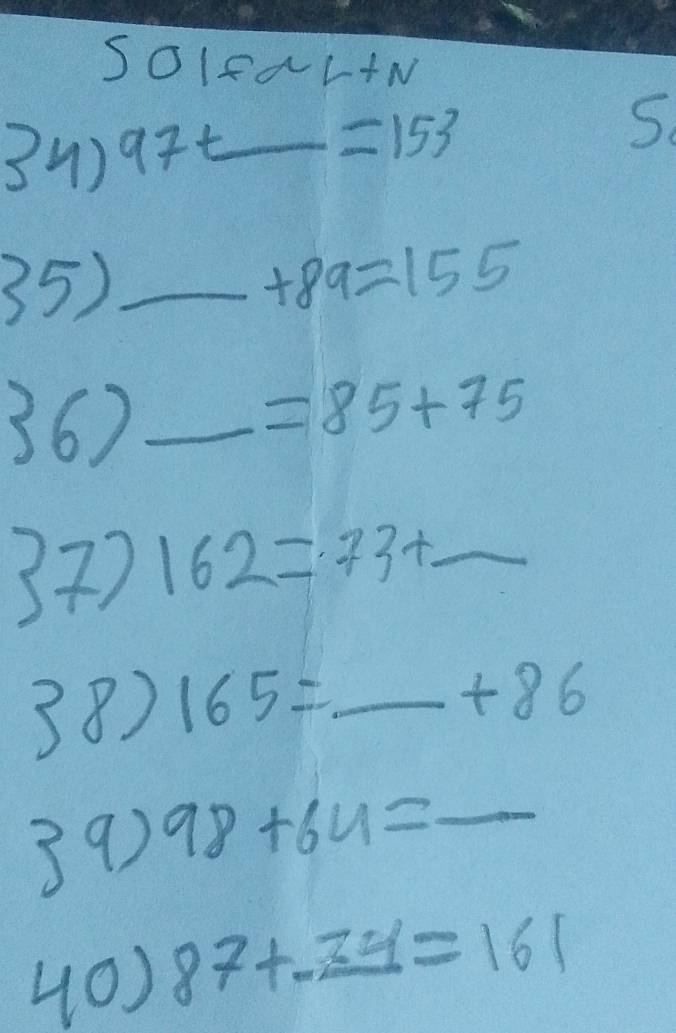 34) 97+___=153
35) ___+89=155
36) ___=85+75
37) 162=73+___
38) 165=___+86
39) 98+64=___
40) 87+74=161